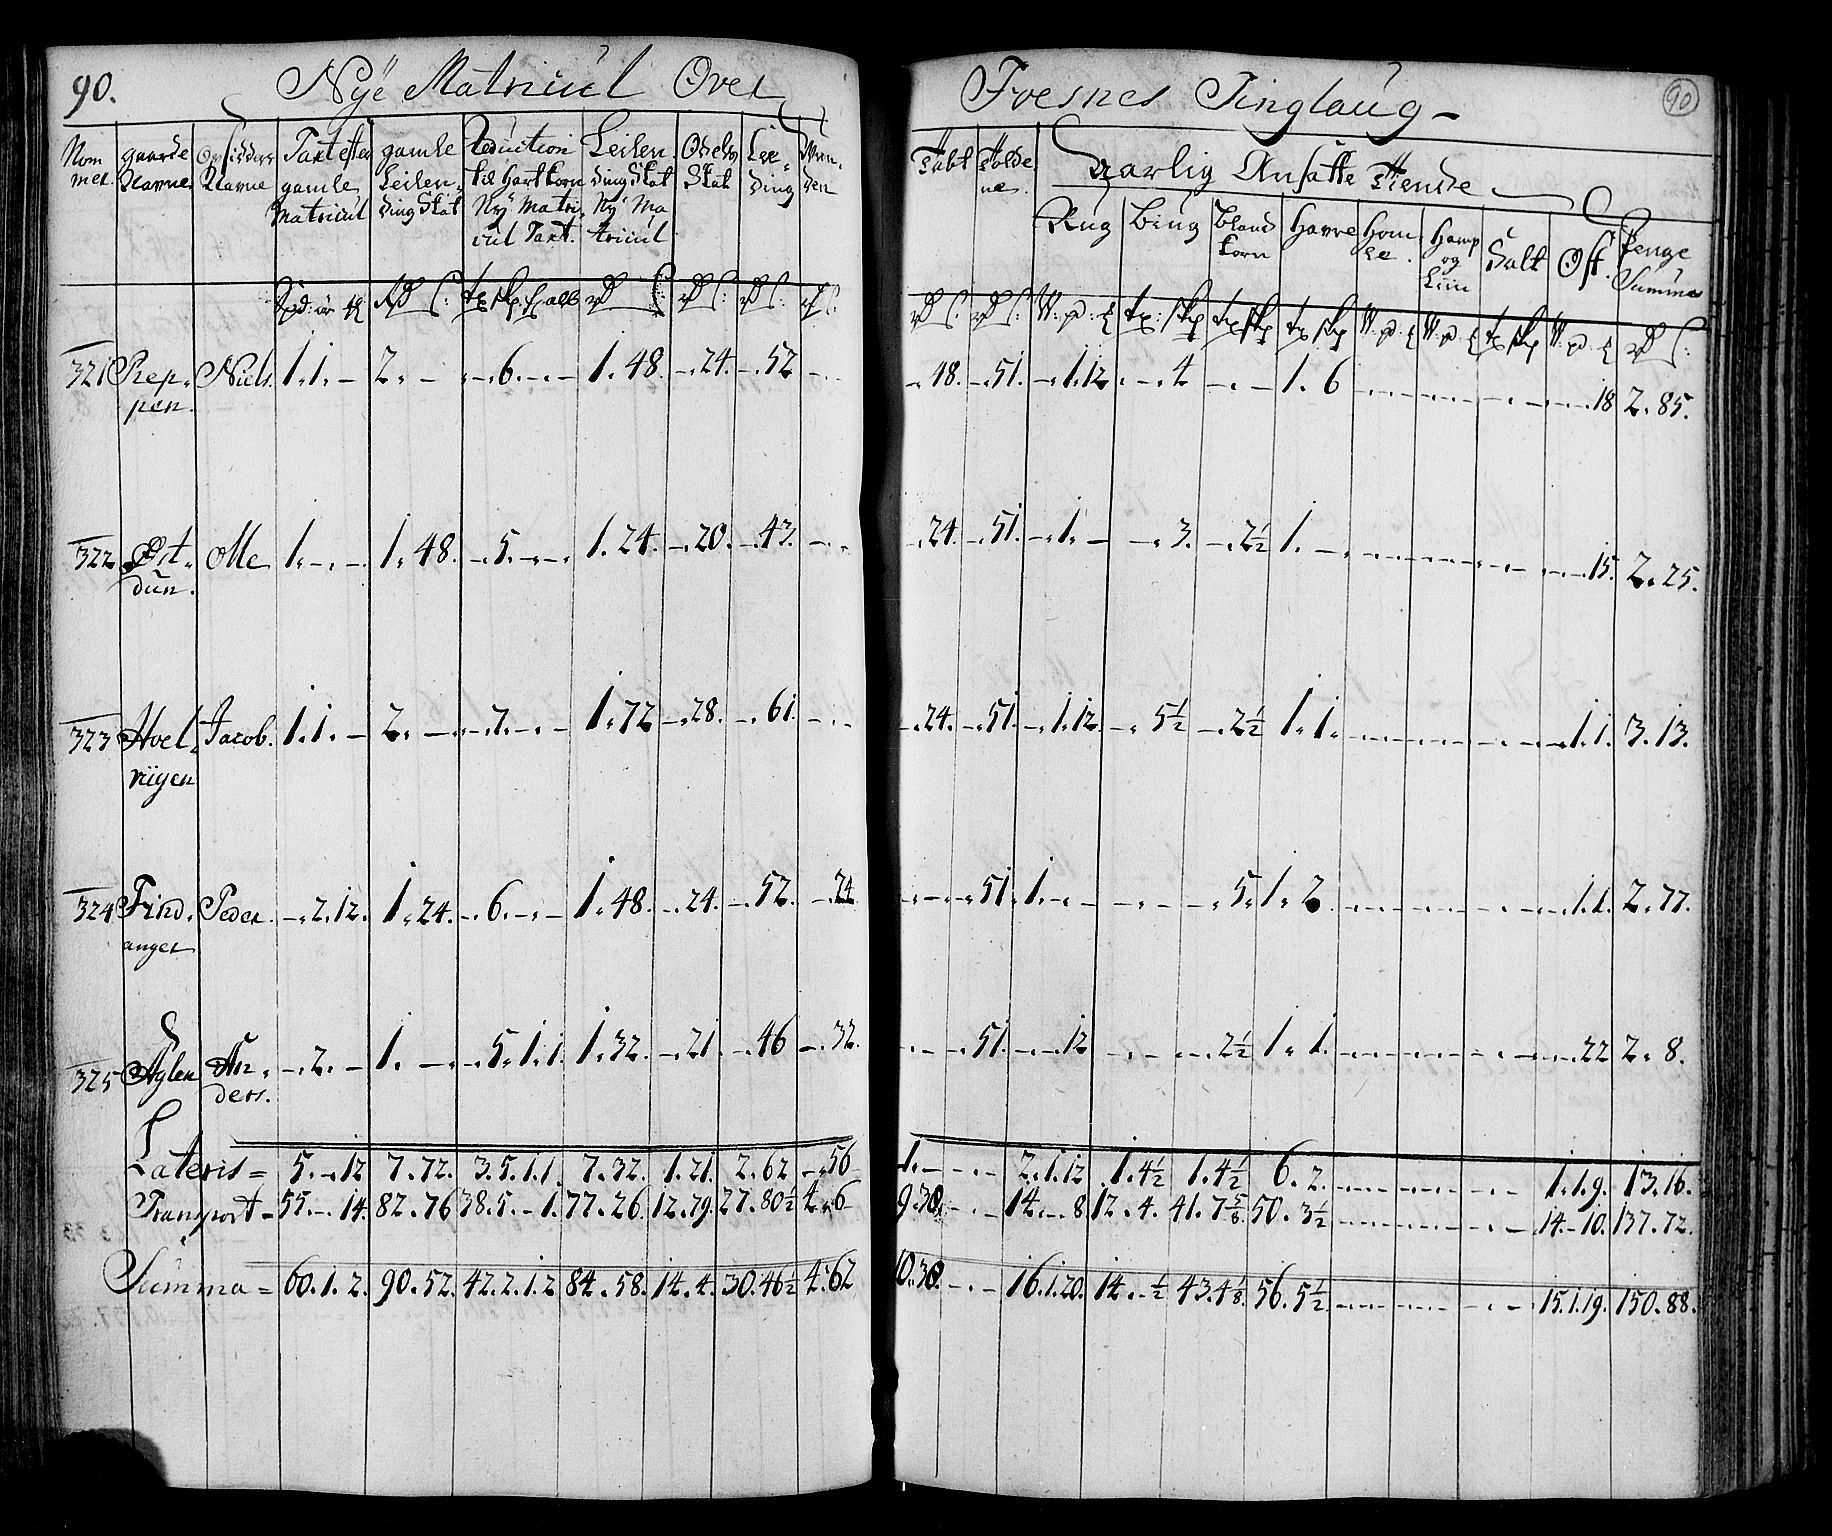 90. Nÿe Matricul Over Fosnes Tinglaug - 90
Nom mer | gaarde Navne | Opsidders Navne | Taxt efter gamle Matricul | gamle Leilending Skat | Reduction til Hartkorn Ny Matricul Taxt. | Leilending Skat Ny Matricul | Odels Skat | Lee ding | | Tabt | Aarlig Ansatte Tiende
Rug | Biug | bland korn | Havre | Hom le. | Hamp og Liin | Salt | Ost. | Penge Summe
321 Reppen. Niels. 1.1.- 2.- -.6.-.- 1.48. -.24. -.52 -.- -.48. -.51. -.1.12 -.-4 -.- 1.6 -.-.18 2.85.
322 Østdun. Olle 1.-.- 1.48. -.5.-.- 1.24. -.20. -.43. -.- -.24. -.51. -.1.- -.3. -.2½ 1.- -.-.15. 2.25.
323 Hoel viigen Jacob. 1.1.- 2.- -.7.-.- 1.72 -.28. -.61. -.- -.24. -.51. -.1.12. -.5½ -.2½ 1.1. -.1.1. 3.13.
324 Find anger Peder. -.2.12. 1.24. -.6.-.- 1.48. -.24. -.52. -.24. -.- -.51. 1.-.- -.- -.5. 1.2 -.1.1. 2.77.
325 Aglen Anders. -.2.- 1.- -.5.1.1. 1.32. -.21. -.46 -.32. -.- -.51. -.-.12 -.- -.2½ 1.1. -.-.22 2.8.
Lateris = 5.-.12 7.72. 3.5.1.1 7.32. 1.21. 2.62 -.56 1.- -.- 2.1.12 1.4½ 1.4½ 6.2. 1.1.9. 13.16.
Transport = 55.-.14. 82.76 38.5.-1. 77.26. 12.79. 27.80½ 4.6 9.30. -.- 14.-.8 12.4. 41.7⅝ 50.3½ 14.-.10. 137.72.
Summa = 60.1.2. 90.52. 42.2.1.2 84.58. 14.4. 30.46½ 4.62 10.30. -.- 16.1.20. 14.-½ 43.4⅛ 56.5½ 15.1.19. 150.88.